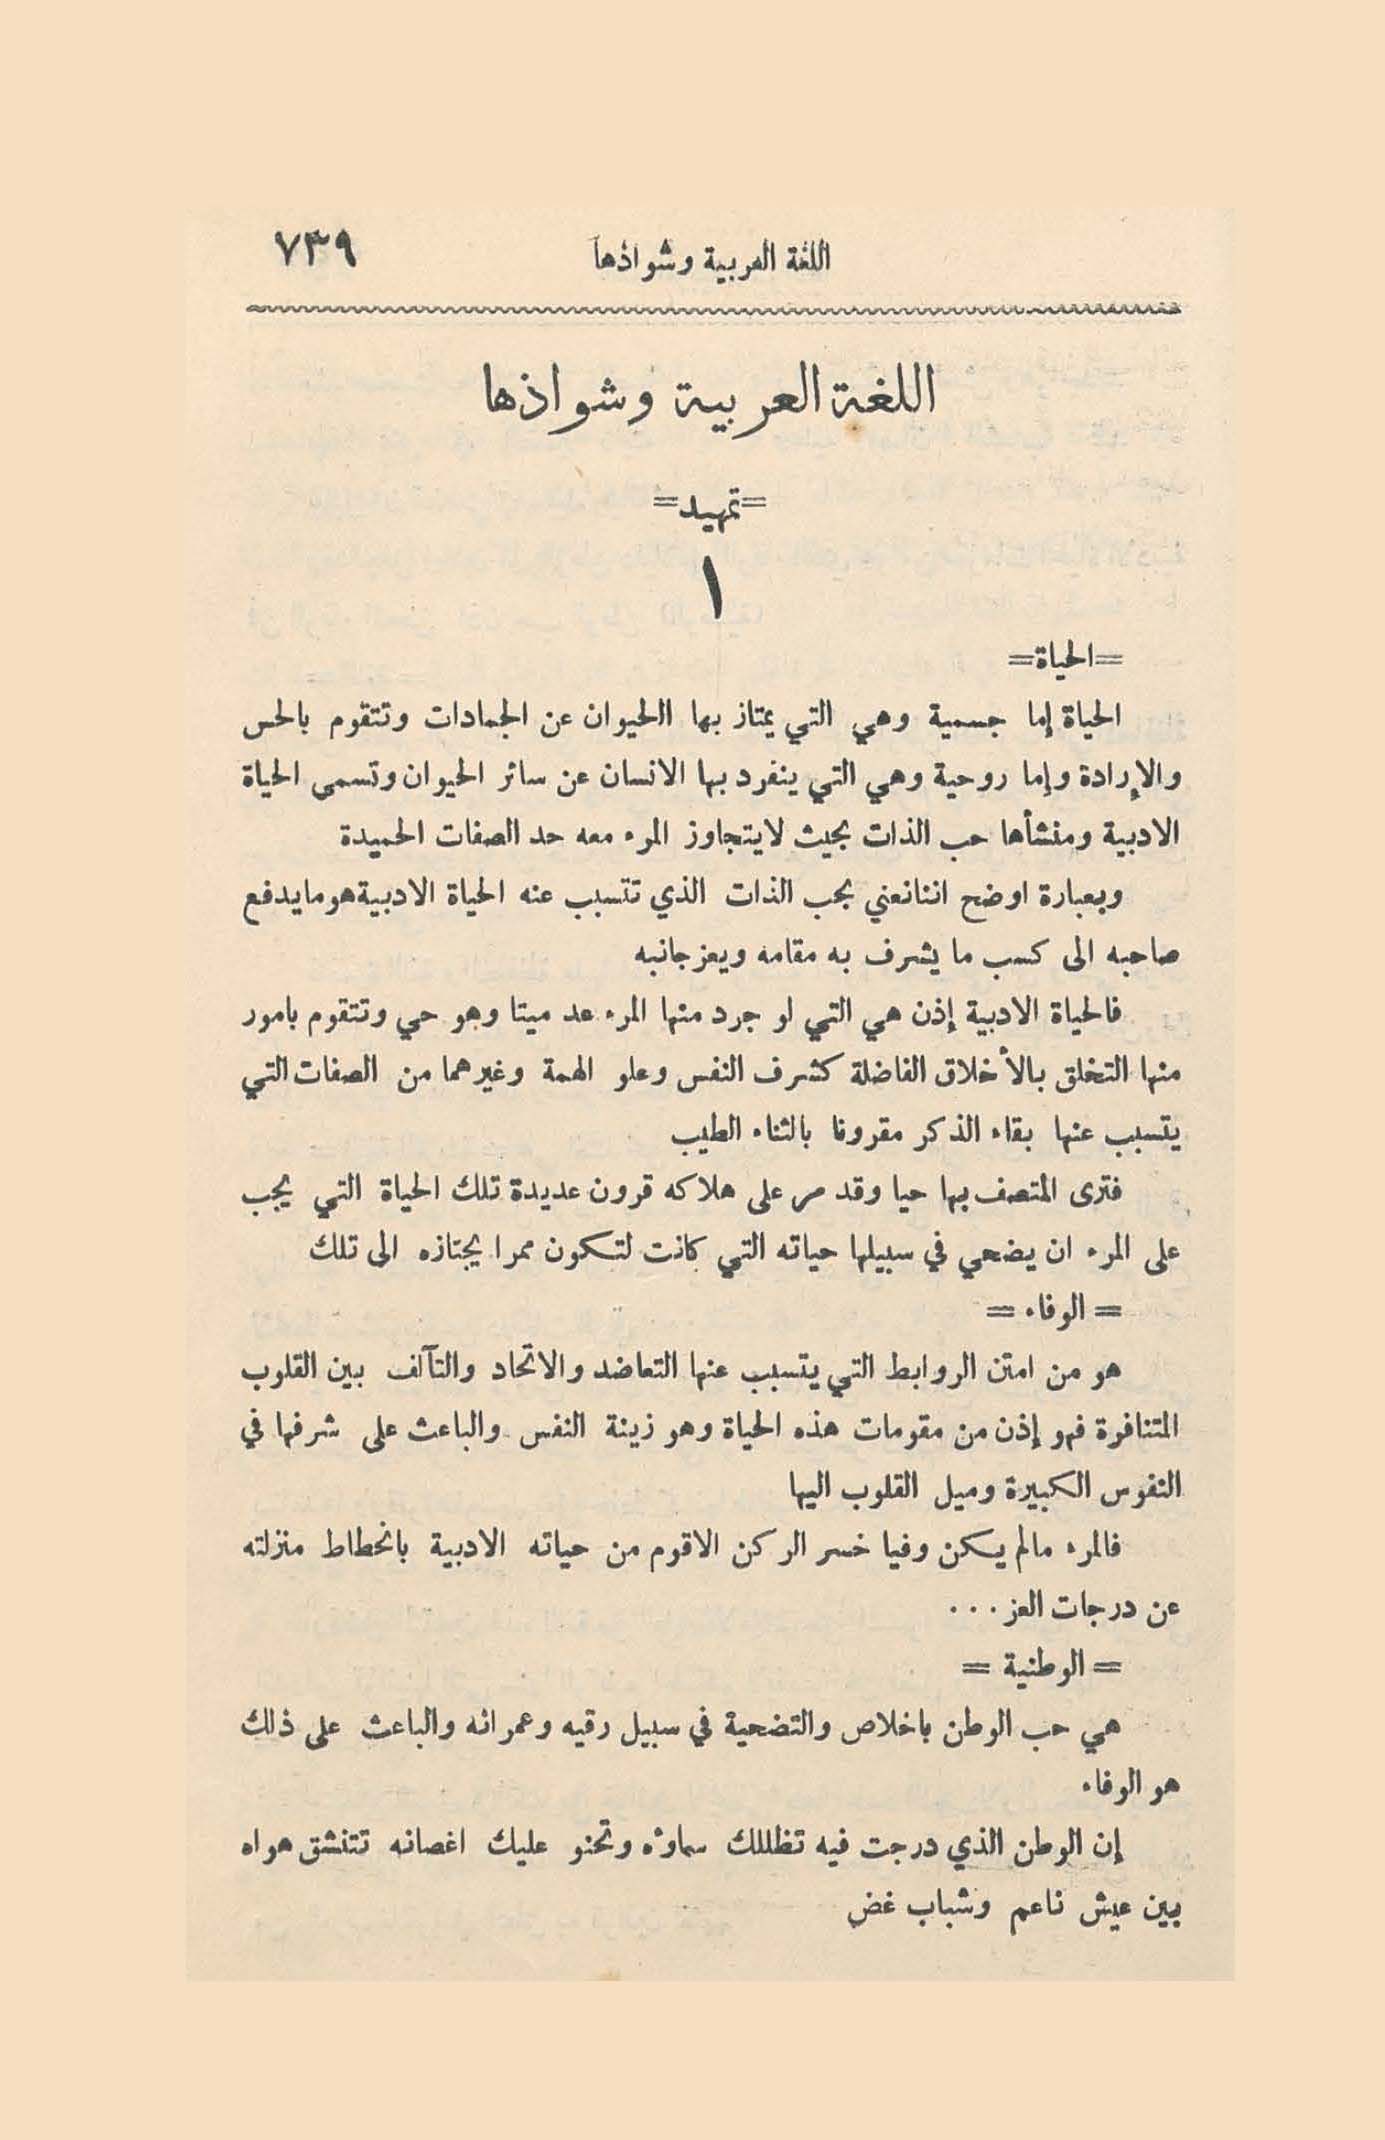 اللغة العربية وشواذها ٧٣٩
اللغة العربية وشواذها
=تمهيد=
١
=الحياة=
الحياة إما جسمية وهي التي يمتاز بها االحيوان عن الجمادات وتتقوم بالحس
والإرادة وإما روحية وهي التي ينفرد بها الانسان عن سائر الحيوان وتسمى الحياة
الادبية ومنشأها حب الذات بحيث لايتجاوز المرء معه حد الصفات الحميدة
وبعبارة اوضح اننانعني بحب الذات الذي تتسبب عنه الحياة الادبية هو مايدفع
صاحبه الى كسب ما يشرف به مقامه ويعز جانبه
فالحياة الادبية إذن هي التي لو جرد منها المرء عد ميتا وهو حي وتتقوم بامور
منها التخلق بالأخلاق الفاضلة كشرف النفس وعلو الهمة وغيرهما من الصفات التي
يتسبب عنها بقاء الذكر مقرونا بالثناء الطيب
فترى المتصف بها حيا وقد مر على هلاكه قرون عديدة تلك الحياة التي يجب
على المرء ان يضحي في سبيلها حياته التي كانت لتكون ممرا يجتازه الى تلك
= الوفاء =
هو من امتن الروابط التي يتسبب عنها التعاضد والاتحاد والتآلف بين القلوب
المتنافرة فهو إذن من مقومات هذه الحياة وهو زينة النفس والباعث على شرفها في
النفوس الكبيرة وميل القلوب اليها
فالمرء مالم يكن وفيا خسر الركن الاقوم من حياته الادبية بانحطاط منزلته
عن درجات العز...
= الوطنية =
هي حب الوطن باخلاص والتضحية في سبيل رقيه وعمرانه والباعث على ذلك
هو الوفاء
إن الوطن الذي درجت فيه تظللك سماؤه وتحنو عليك اغصانه تتنشق هواه
بين عيش ناعم وشباب غض